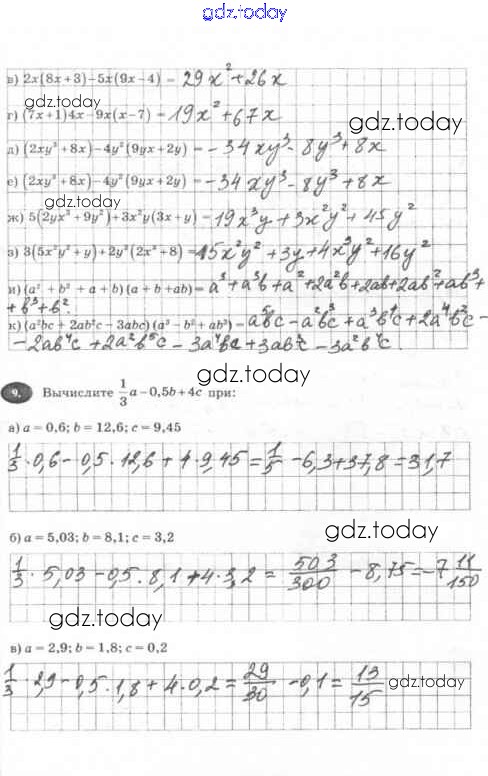 gdz.today
в) 2x(8x+3)−5x(9x−4) = 29x²+26x
gdz.today
г) (7x+1)4x−9x(x−7) = 19x²+67x
gdz.today
д) (2xy³+8x)−4y²(9yx+2y) = −34xy³−8y³+8x
е) (2xy³+8x)−4y²(9yx+2y) = −34xy³−8y³+8x
gdz.today
ж) 5(2yx³+9y²)+3x²y(3x+y) = 19x³y+3x²y²+45y²
з) 3(5x²y²+y)+2y²(2x³+8) = 15x²y²+3y+4x³y²+16y²
и) (a²+b²+a+b)(a+b+ab) = a³+a³b+a²+2a²b+2ab+2ab²+ab³+
+b³+b².
к) (a²bc+2ab²c−3abc)(a³−b²+ab³) = a⁵bc−a²b³c+a³b⁴c+2a⁴b²c−
−2ab⁴c+2a²b⁵c−3a⁴bc+3ab³c−3a²b⁴c.
gdz.today
9. Вычислите 1/3 a−0,5b+4c при:
а) a = 0,6; b = 12,6; c = 9,45
1/3 · 0,6−0,5·12,6+4·9,45 = 1/5 −6,3+37,8=31,7
б) a = 5,03; b = 8,1; c = 3,2
gdz.today
1/3 · 5,03−0,5·8,1+4·3,2 = 503/300 − 8,75=−7 11/150
gdz.today
в) a = 2,9; b = 1,8; c = 0,2
1/3 · 2,9−0,5·1,8+4·0,2 = 29/30 −0,1= 13/15
gdz.today